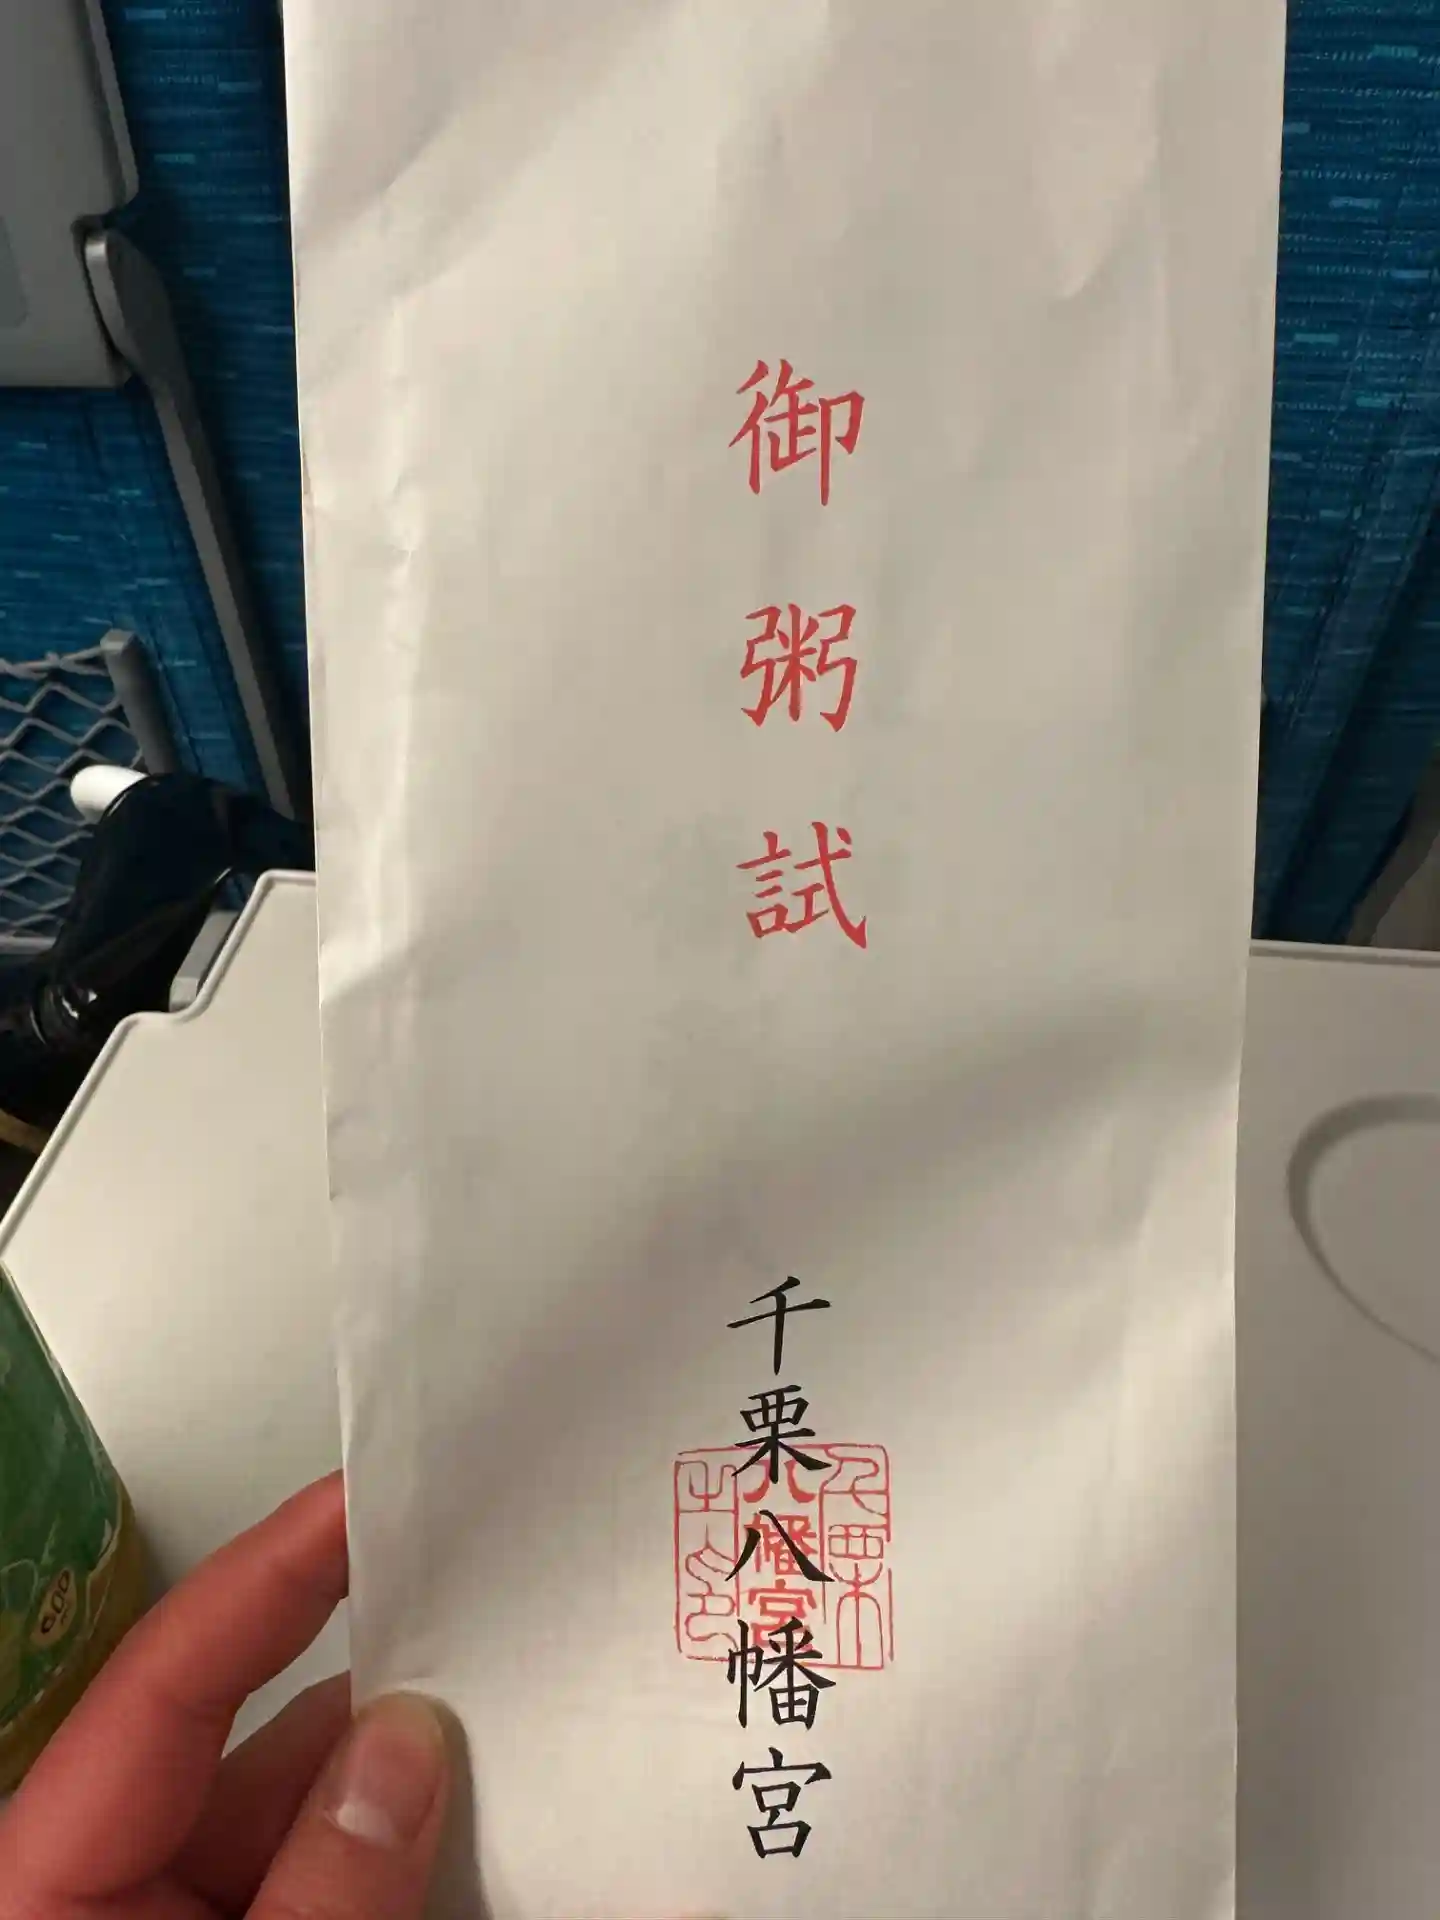 御粥試
千栗八幡宮
八幡宮
600